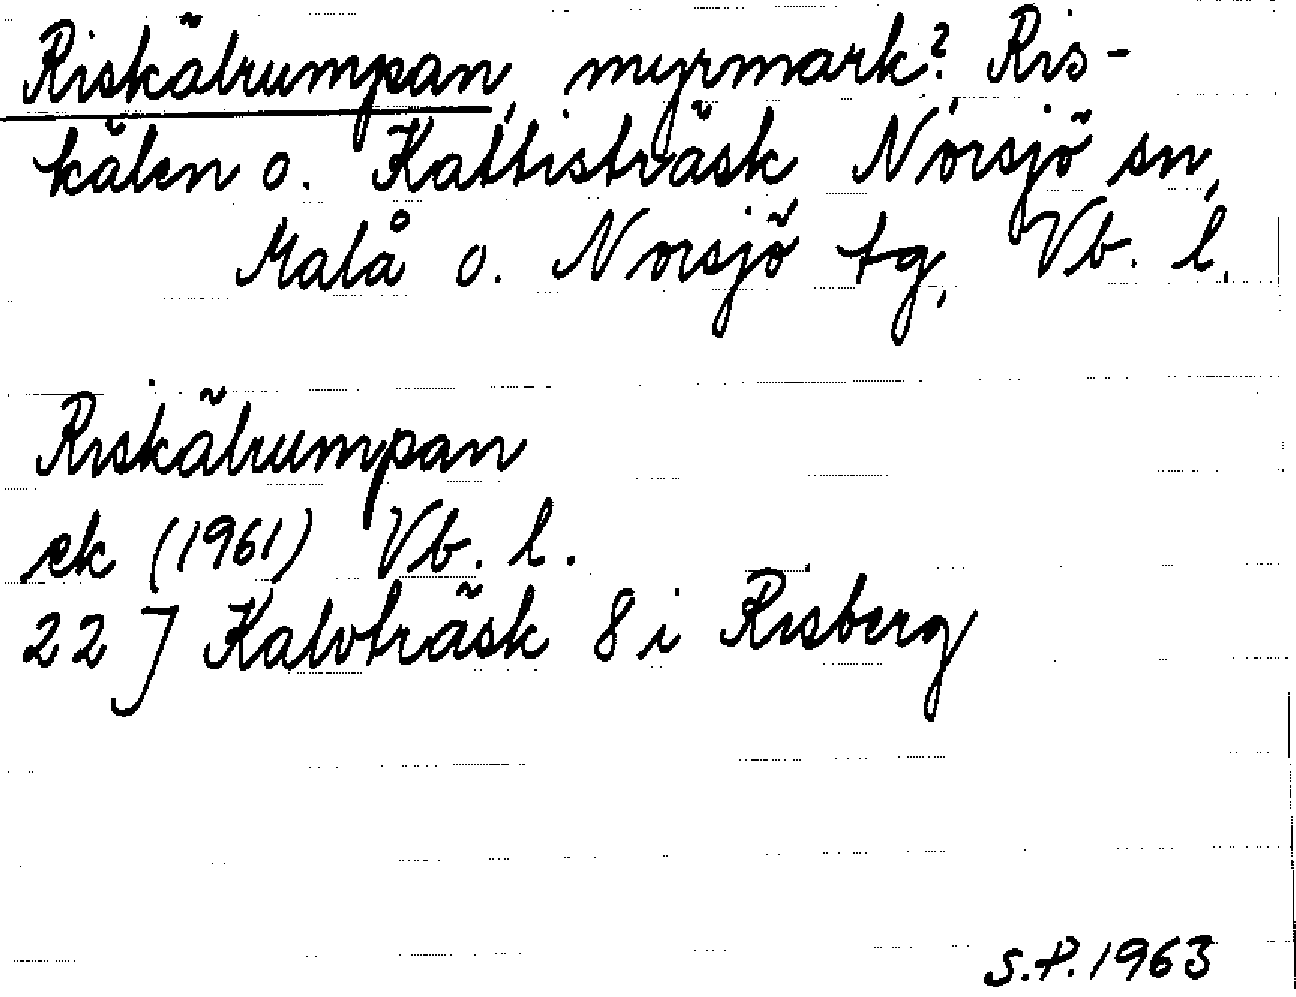 Riskälrumpan, myrmark? Ris-
kälen o. Kattisträsk Norsjö sn,
Malå o. Norsjö tg, Vb. l.
Riskälrumpan
ek (1961) Vb. l.
22 J Kalvträsk 8 i Risberg
S.P. 1963